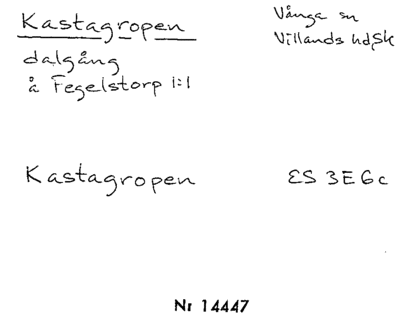 Kastagropen
Vånga sn
Villands hd, Sk
dalgång
å Fegelstorp 1:1
Kastagropen
ES 3E6c
Nr 14447